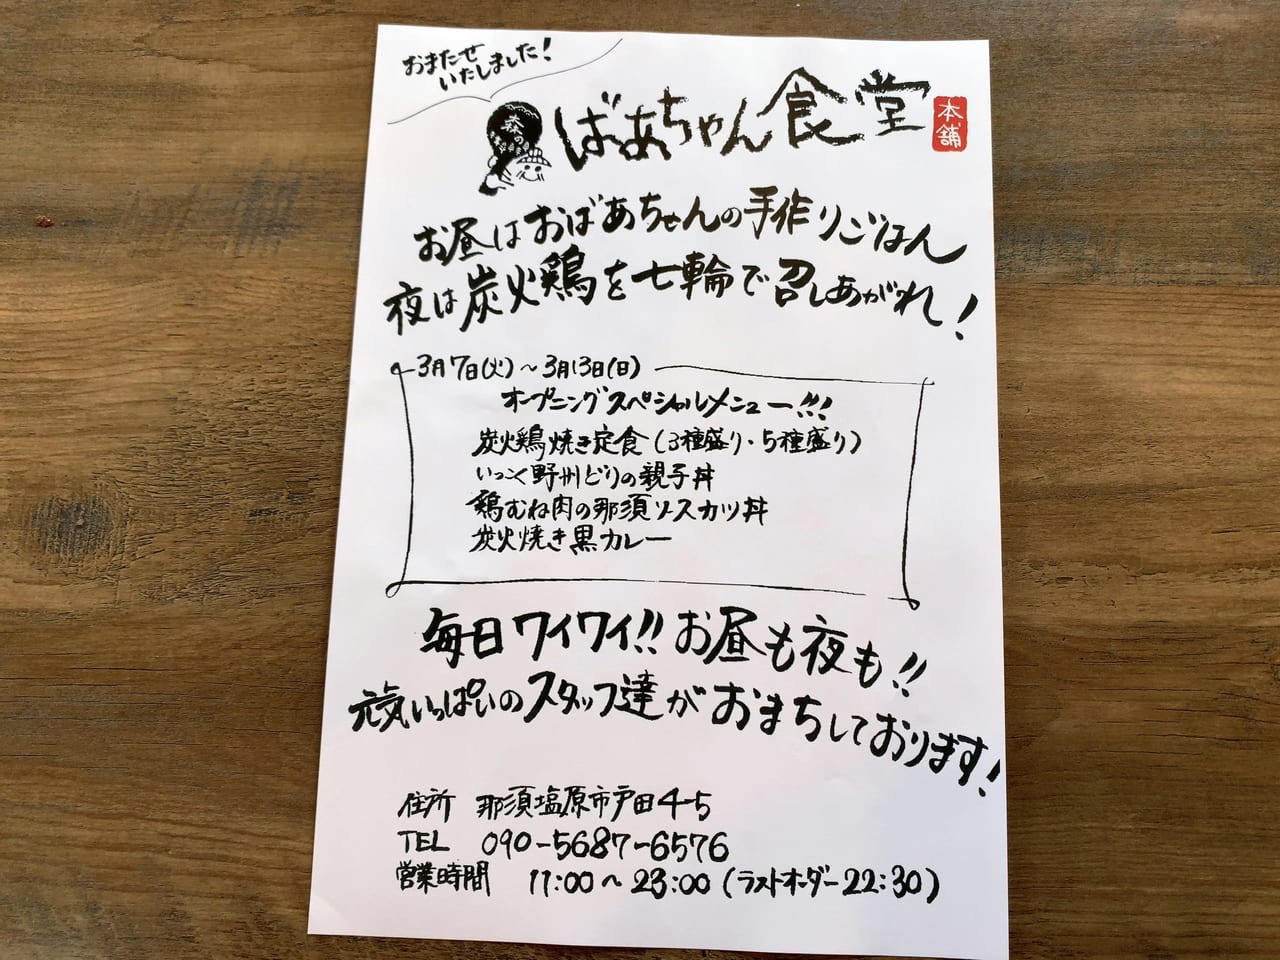 おまたせ
いたしました！
ばあちゃん食堂
本舗
お昼はおばあちゃんの手作りごはん
夜は炭火鶏を七輪で召しあがれ！
3月7日(火)～3月13日(日)
オープニングスペシャルメニュー!!!
炭火鶏焼き定食(3種盛り・5種盛り)
いっこく野州どりの親子丼
鶏むね肉の那須ソースカツ丼
炭火焼き黒カレー
毎日ワイワイ!!お昼も夜も!!
元気いっぱいのスタッフ達がおまちしております！
住所 那須塩原市戸田4-5
TEL 090-5687-6576
営業時間 11:00～23:00(ラストオーダー22:30)